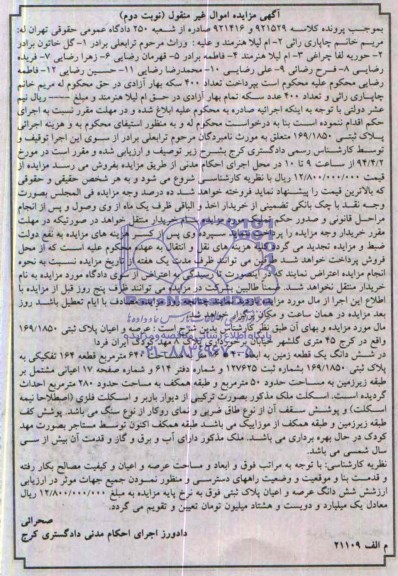 آگهی مزایده اموال غیر منقول (نوبت دوم)
بموجب پرونده کلاسه ۹۲۱۵۲۹ و ۹۲۱۴۱۶ صادره از شعبه ۲۵۰ دادگاه عمومی حقوقی تهران له:
مریم خانم چاپاری راثی ۲- ام لیلا هنرمند و علیه: وراث مرحوم ترابعلی برادر ۱- گل خاتون برادر
۲- حوریه لقا چراغی ۳- ام لیلا هنرمند ۴- فاطمه برادر ۵- قهرمان رضایی ۶- زهرا رضایی ۷- فریده
رضایی ۸- فرح رضائی ۹- علی رضایی ۱۰- محمدرضا رضایی ۱۱- حسین رضایی ۱۲- فاطمه
رضایی محکوم علیه محکوم است بپرداخت تعداد ۴۰۰ سکه بهار آزادی در حق محکوم له مریم خانم
چاپاری راثی و تعداد ۴۰۰ عدد سکه تمام بهار آزادی در حق ام لیلا هنرمند و مبلغ ---- ریال نیم
عشر دولتی با توجه به اینکه اجرائیه صادره به محکوم علیه ابلاغ شده و در مهلت مقرر نسبت به اجرای
حکم اقدام ننموده است بنا به درخواست محکوم له و به منظور استیفای محکوم به و هزینه اجرائی
پلاک ثبتی ۱۶۹/۱۸۵۰ متعلق به مورث نامبردگان مرحوم ترابعلی برادر از سوی این اجرا توقیف و
توسط کارشناس رسمی دادگستری کرج بشرح زیر توصیف و ارزیابی شده و مقرر است در مورخ
۹۴/۴/۲ از ساعت ۹ تا ۱۰ در محل اجرای احکام مدنی از طریق مزایده بفروش می رسد مزایده از
قیمت ۱۲/۸۰۰/۰۰۰/۰۰۰ ریال با نظریه کارشناسی شروع می شود و به هر شخص حقیقی و حقوقی
که بالاترین قیمت را پیشنهاد نماید فروخته خواهد شد. ده درصد وجه مزایده فی المجلس بصورت
وجه نقد یا چک بانکی تضمینی از خریدار اخذ و الباقی ظرف یک ماه از وی وصول و پس از انجام
مراحل قانونی و صدور حکم تملیک مورد مزایده بنام خریدار منتقل خواهد در صورتیکه در مهلت
مقرر خریدار وجه مزایده را پرداخت ننماید سپرده وی پس از کسر هزینه های مزایده به نفع دولت
ضبط و مزایده تجدید می گردد کلیه هزینه های نقل و انتقال به عهده محکوم علیه است که از محل
فروش پرداخت خواهد شد طرفین می توانند ظرف مدت یک هفته از تاریخ مزایده نسبت به نحوه
انجام مزایده اعتراض نمایند که در اینصورت تا رسیدگی به اعتراض از سوی دادگاه مورد مزایده به نام
خریدار منتقل نخواهد شد. ضمناً طالبین شرکت در مزایده می توانند ظرف پنج روز قبل از مزایده با
اطلاع این اجرا از مال مورد مزایده بازدید نمایند چنانچه روز مزایده مصادف با ایام تعطیل باشد روز
بعد مزایده در همان ساعت و مکان برگزار خواهد شد.
مال مورد مزایده و بهای آن طبق نظر کارشناس بدین شرح است: عرصه و اعیان پلاک ثبتی ۱۶۹/۱۸۵۰
واقع در کرج ۴۵ متری گلشهر خیابان پلاک ۸ مهد کودک ایران فردا
در شش دانگ یک قطعه زمین به مساحت ۶۴۲ مترمربع قطعه ۱۶۴ تفکیکی به
پلاک ثبتی ۱۶۹/۱۸۵۰ بشماره ثبت ۱۲۷۶۲۵ و شماره دفتر ۶۱۴ و شماره صفحه ۱۷ اعیانی مشتمل بر
طبقه زیرزمین به مساحت حدود ۵۰ مترمربع و طبقه همکف به مساحت حدود ۲۸۰ مترمربع احداث
گردیده است. اسکلت ملک مذکور بصورت ترکیبی از دیوار باربر و اسکلت فلزی (اصطلاحا نیمه
اسکلت) و پوشش سقف آن از نوع طاق ضربی و نمای روکار از نوع سنگ می باشد. پوشش کف
طبقه زیرزمین و طبقه همکف از موزاییک می باشد طبقه همکف اکنون توسط مستاجر بصورت مهد
کودک در حال بهره برداری می باشد. ملک مذکور دارای آب و برق و گاز و قدمت آن بیش از سی
سال شمسی می باشد.
نظریه کارشناسی: با توجه به مراتب فوق و ابعاد و مساحت عرصه و اعیان و کیفیت مصالح بکار رفته
و قدمت بنا و موقعیت و وضعیت راههای دسترسی و منظور نمودن جمیع جهات موثر در ارزیابی
ارزشش شش دانگ عرصه و اعیان پلاک ثبتی فوق به نرخ پایه مزایده به مبلغ ۱۲/۸۰۰/۰۰۰/۰۰۰ ریال
معادل یک میلیارد و دویست و هشتاد میلیون تومان تعیین و تقویم می گردد.
صحرائی
دادورز اجرای احکام مدنی دادگستری کرج
م الف ۲۱۱۰۹